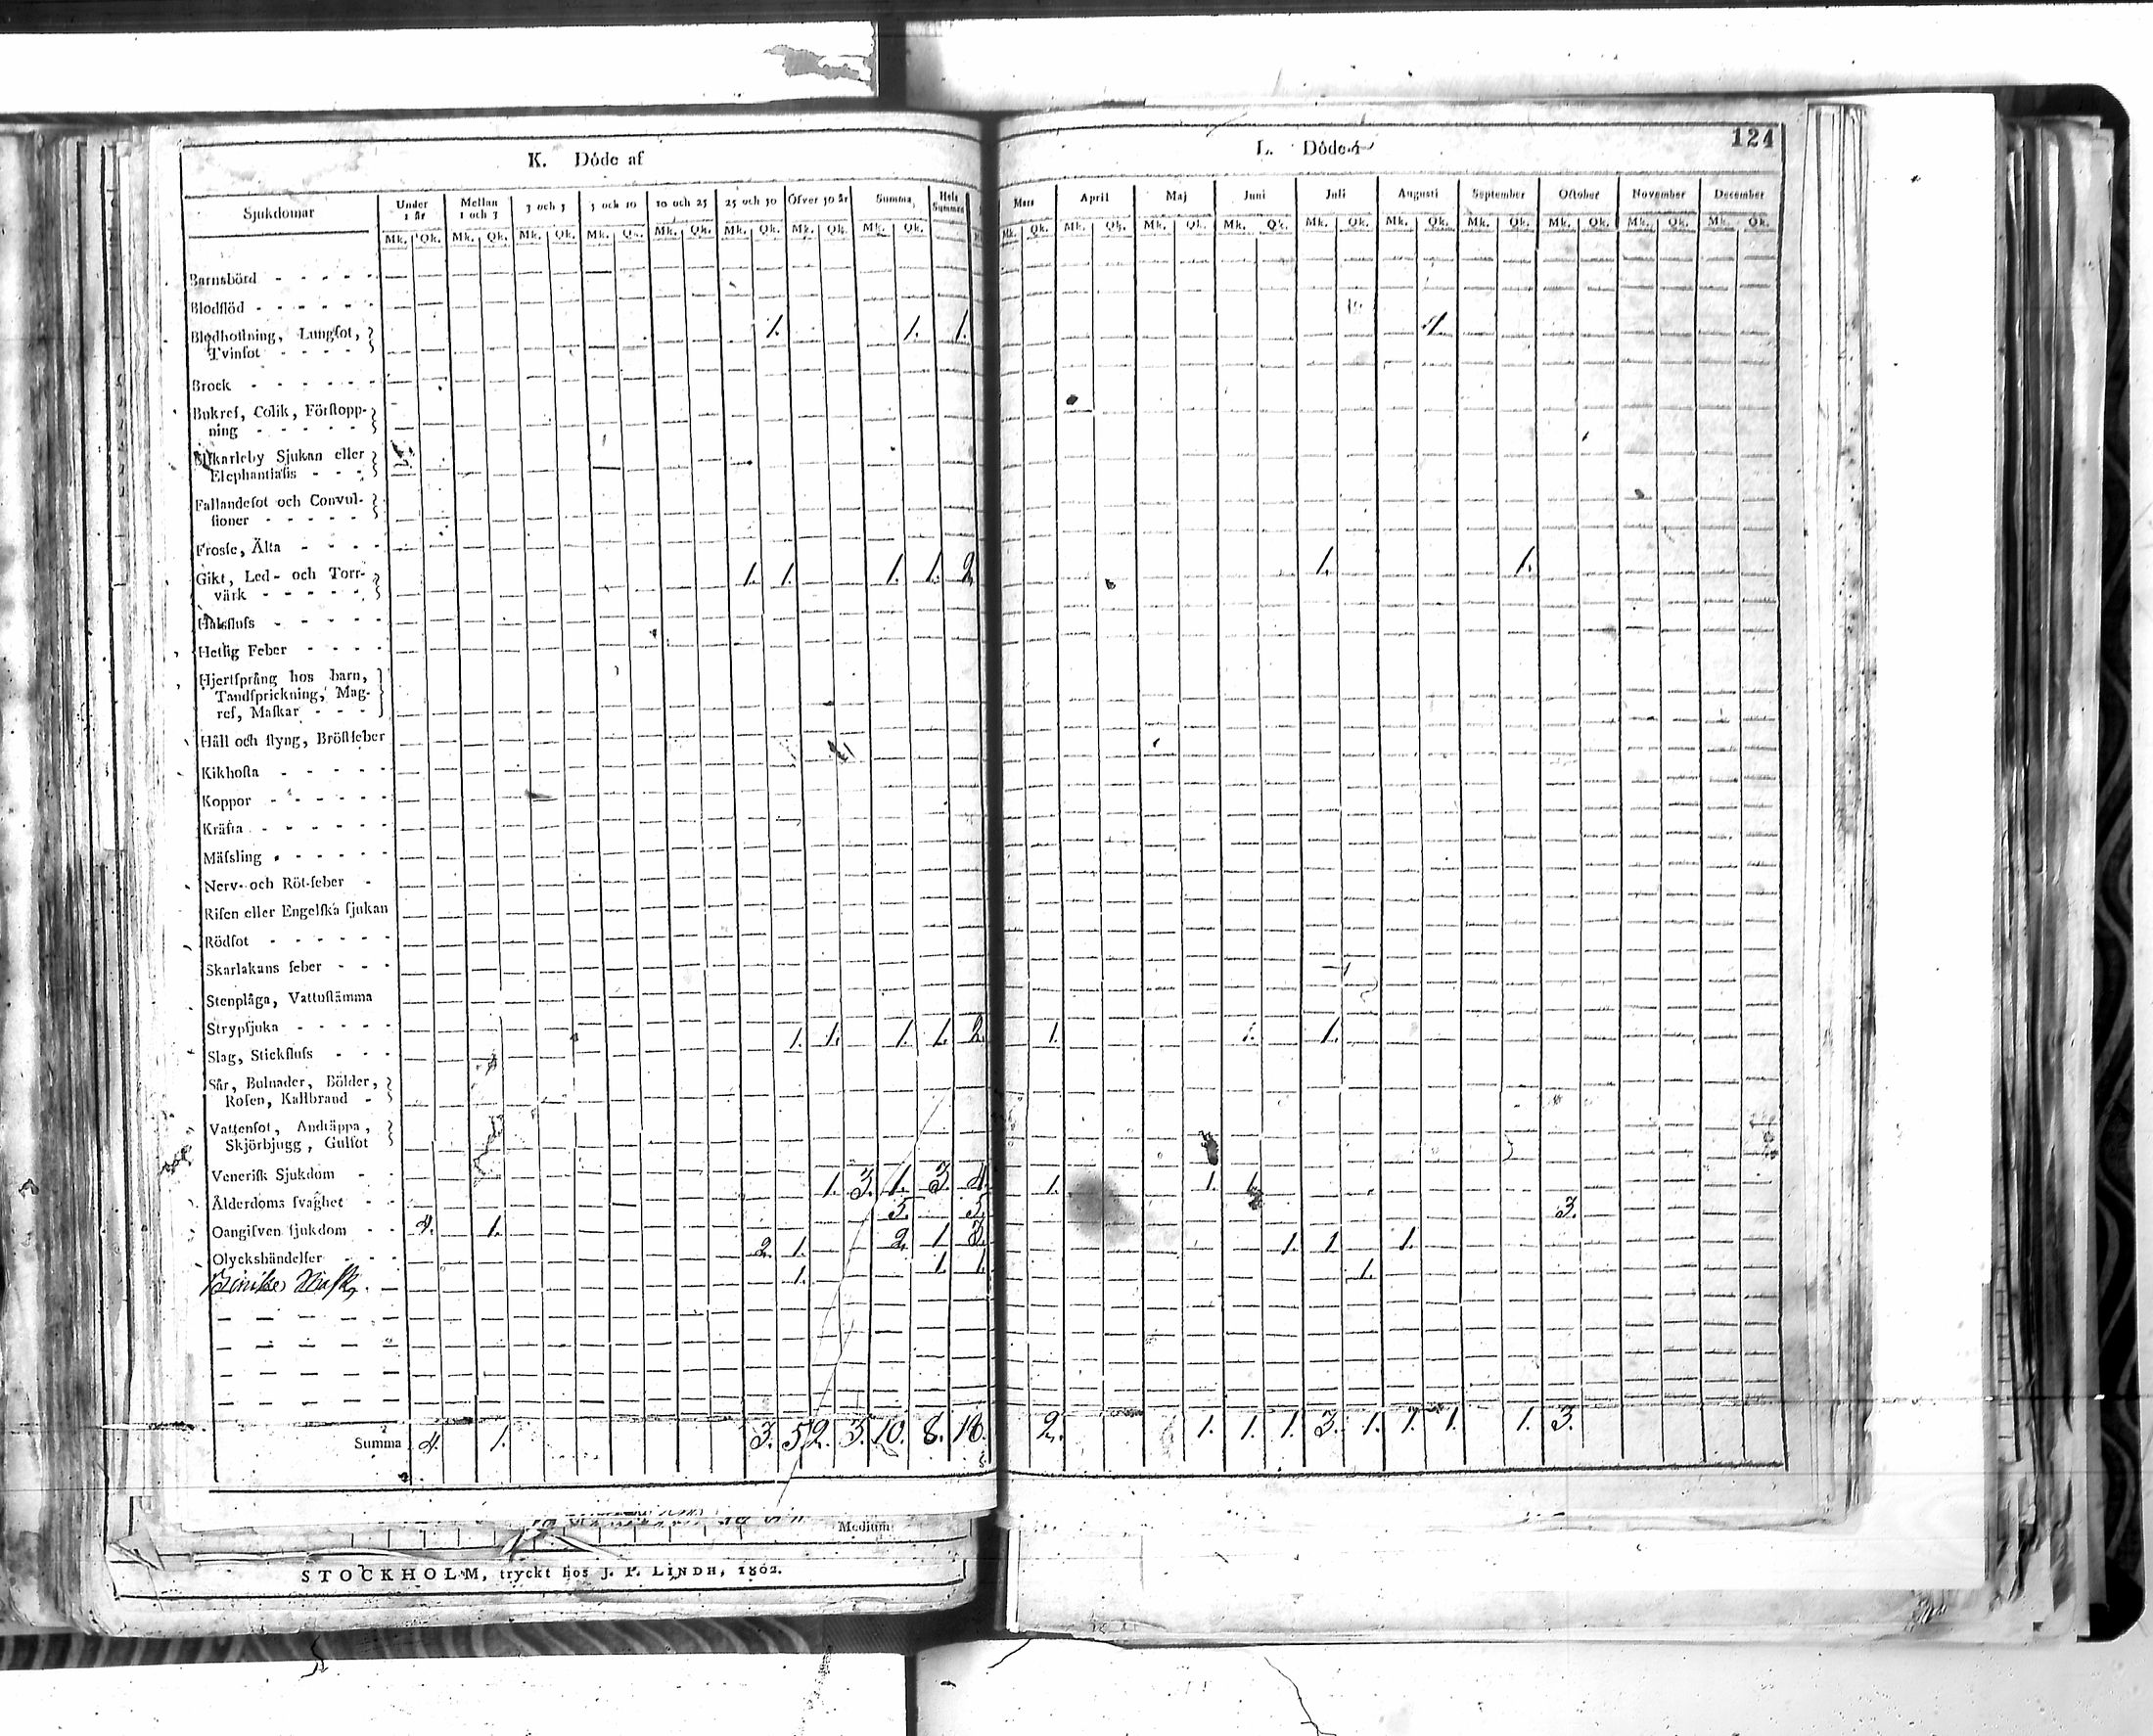 124
K. Döde af
L. Döde i
Sjukdomar
Under 1 år
Mellan 1 och 3
3 och 5
5 och 10
10 och 25
25 och 50
Öfver 50 år
Summa
Hela Summan
Mk. Qk. Mk. Qk. Mk. Qk. Mk. Qk. Mk. Qk. Mk. Qk. Mk. Qk. Mk. Qk.
Mars April Maj Juni Juli Augusti September October November December
Mk. Qk. Mk. Qk. Mk. Qk. Mk. Qk. Mk. Qk. Mk. Qk. Mk. Qk. Mk. Qk. Mk. Qk. Mk. Qk.
Barnsbörd
Blodflöd
Blodhostning, Lungsot, 1. 1. 1. 1.
Tvinsot
Brock
Bukref, Colik, Förstopp-
ning
Elfkarleby Sjukan eller
Elephantiasis
Fallandesot och Convul-
sioner
Frossa, Älta
Gikt, Led- och Torr- 1. 1. 1. 1. 2. 1. 1.
värk
Halsfluss
Hetsig Feber
Hjertsprång hos barn,
Tandsprickning, Mag-
ref, Maskar
Håll och styng, Bröstfeber
Kikhosta
Koppor
Kräfta
Mässling
Nerv- och Röt-feber
Risen eller Engelska sjukan
Rödsot
Skarlakans feber
Stenplåga, Vattustämma
Strypsjuka
Slag, Stickfluss 1. 1. 1. 1. 2. 1. 1. 1.
Sår, Bulnader, Bölder,
Rosen, Kallbrand
Vattensot, Andtäppa,
Skjörbjugg, Gulsot
Venerisk Sjukdom
Ålderdoms svaghet 1. 3. 1. 3. 4. 1. 1. 1.
Oangifven sjukdom 4. 1. 5. 5. 3.
Olyckshändelser 2. 1. 2. 1. 3. 1. 1. 1.
1. 1. 1. 1.
Summa 4. 1. 3. 5. 2. 3. 10. 8. 18. 2. 1. 1. 1. 3. 1. 1. 1. 1. 3.
Medium
STOCKHOLM, tryckt hos J. P. LINDH, 1802.